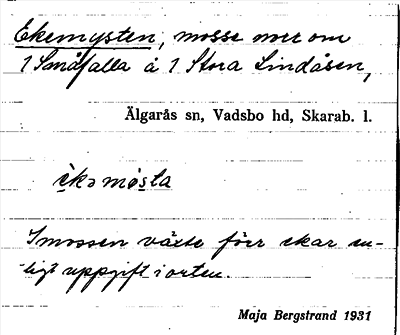 Ekemysten, mosse mer om
1 Småfalla å 1 Stora Lindåsen,
Älgarås sn, Vadsbo hd, Skarab. l.
èkəmøsta
I mossen växte förr ekar en-
ligt uppgift i orten.
Maja Bergstrand 1931